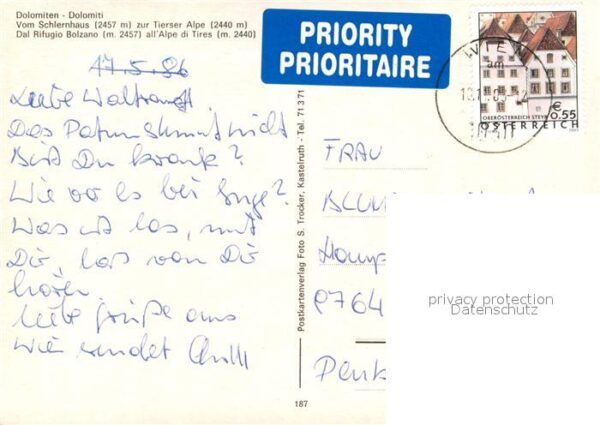 Dolomiten - Dolomiti
Vom Schlernhaus (2457 m) zur Tierser Alpe (2440 m)
Dal Rifugio Bolzano (m. 2457) all'Alpe di Tires (m. 2440)
PRIORITY
PRIORITAIRE
WIEN
OBERÖSTERREICH STEYR
€0.55
ÖSTERREICH
17.5.86
Liebe Waltraud!
Das Datum stimmt nicht
Bist Du krank?
Wie war es bei Inge?
Was ist los, mit
Dir, lass von Dir
hören.
Liebe Grüße aus
Wien sendet
FRAU
Postkartenverlag Foto S. Trocker, Kastelruth - Tel. 71371
187
privacy protection
Datenschutz